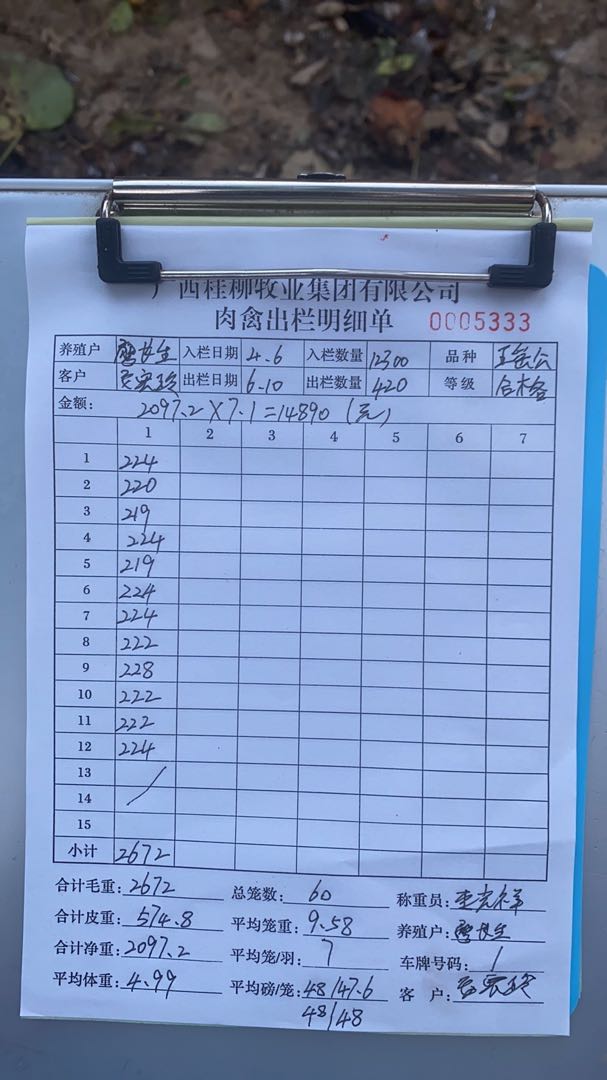 广西桂柳牧业集团有限公司
肉禽出栏明细单 0005333
养殖户 入栏日期 4.6 入栏数量 12300 品种
客户 出栏日期 6.10 出栏数量 420 等级 合格
金额: 2097.2×7.1=14890(元)
1 2 3 4 5 6 7
1 224
2 220
3 219
4 224
5 219
6 224
7 224
8 222
9 228
10 222
11 222
12 224
13 /
14
15
小计 2672
合计毛重: 2672 总笼数: 60 称重员:
合计皮重: 574.8 平均笼重: 9.58 养殖户:
合计净重: 2097.2 平均笼/羽: 7 车牌号码: 1
平均体重: 4.99 平均磅/笼: 48/47.6 客 户:
48/48